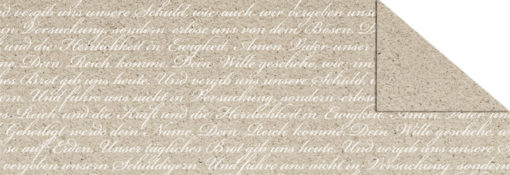 und vergib uns unsere Schuld, wie auch wir vergeben unsern
Versuchung, sondern erlöse uns von dem Bösen. D
und die Herrlichkeit in Ewigkeit. Amen. Vater unser
Reich komme. Dein Wille geschehe, wie im
ches Brot gib uns heute. Und vergib uns unsere Schuld
ern. Und führe uns nicht in Versuchung, sondern erlöse
as Reich und die Kraft und die Herrlichkeit in Ewigkeit. Amen.
Geheiligt werde dein Name. Dein Reich komme. Dein Wille geschehe
so auf Erden. Unser tägliches Brot gib uns heute. Und vergib uns
vergeben unsern Schuldigern. Und führe uns nicht in Versuchung, sondern